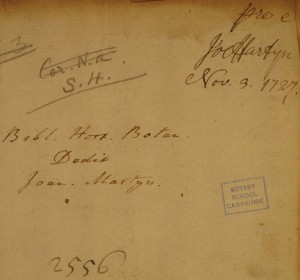 pre
Jo Martyn
Nov. 3. 1727.
Cor. N.a.
S.H.
Bibl. Hort. Botan.
Dedit
Joan. Martyn.
BOTANY
SCHOOL
CAMBRIDGE
2556